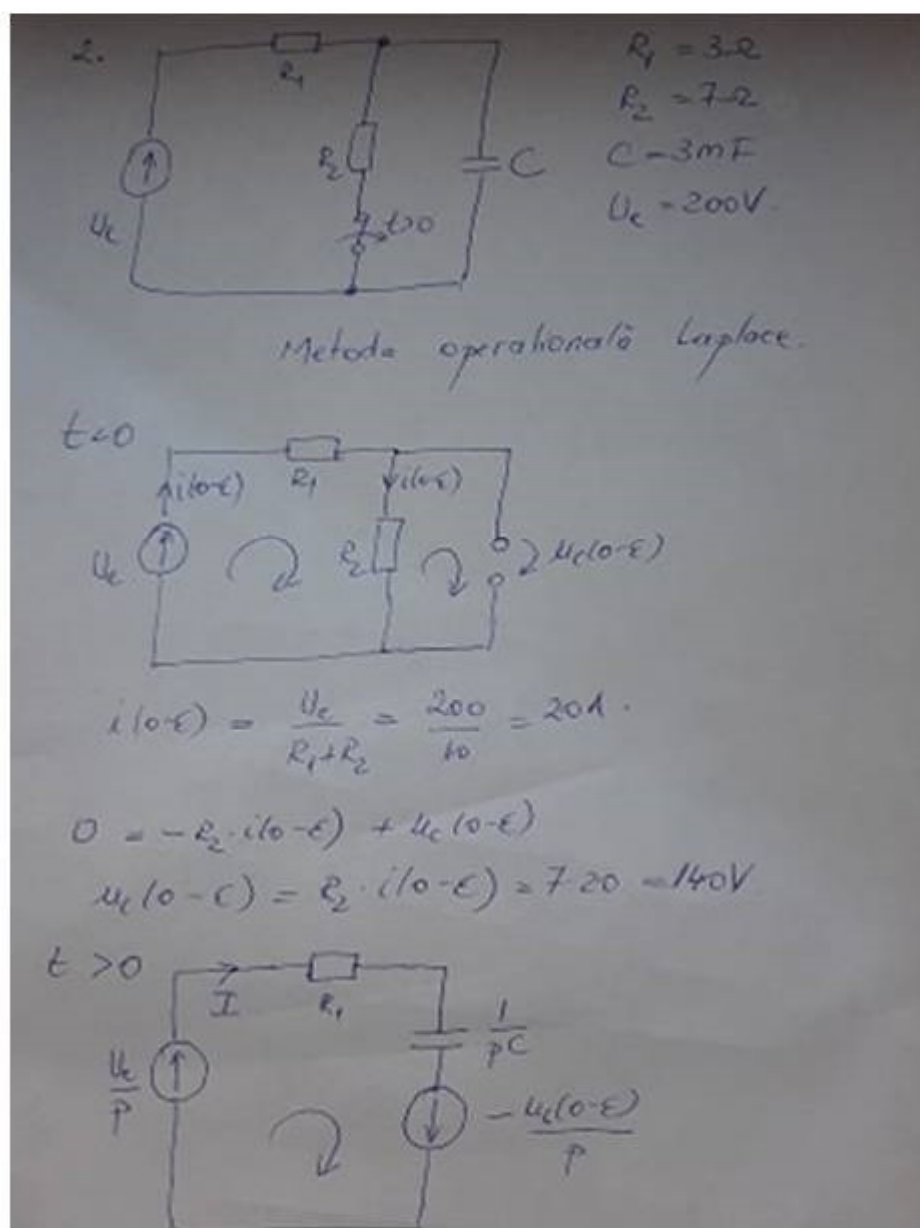 2.
R₁
R₁ = 3Ω
R₂ = 7Ω
R₂
C
C = 3mF
Uₑ
t>0
Uₑ = 200V
Metoda operațională Laplace.
t<0
i(0-ε)
R₁
i(0-ε)
Uₑ
R₂
u_c(0-ε)
i(0-ε) = Uₑ/(R₁+R₂) = 200/10 = 20A.
0 = -R₂·i(0-ε) + u_c(0-ε)
u_c(0-ε) = R₂·i(0-ε) = 7·20 = 140V
t >0
I
R₁
1/pC
Uₑ/p
-u_c(0-ε)/p